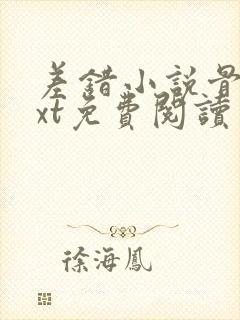 差錯小説最
xt免費閱讀
徐海鳳